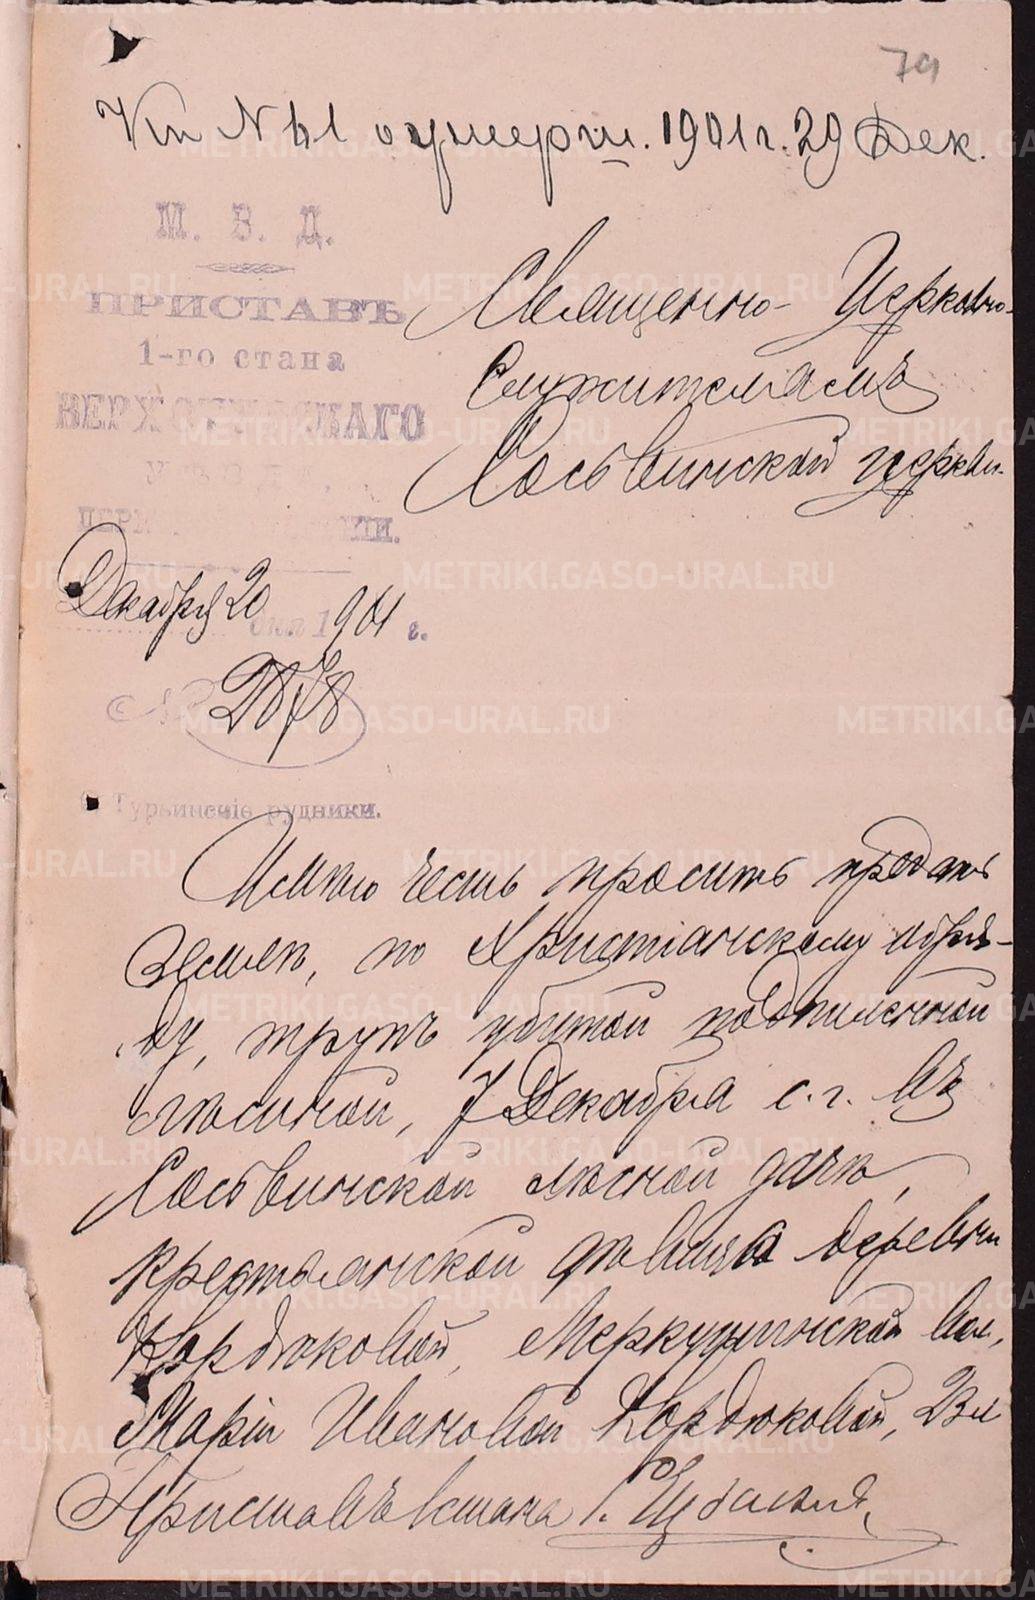 79
Къ № 61 о умерш. 1901 г. 29 Дек.
М. В. Д.
ПРИСТАВЪ
1-го стана
ВЕРХОТУРСКАГО
Декабря 20 дня 1901 г.
№ 2878
Турьинскіе рудники.
Священно-Церковно-
Служителямъ
Сосьвинской церкви.
Имѣю честь просить предать
землѣ, по Христіанскому обря-
ду, трупъ убитой подпиленной
лѣсиной, 7 Декабря с. г. въ
Сосьвинской лѣсной дачѣ,
крестьянской дѣвицы деревни
Кордюковой, Меркушинской вол.,
Маріи Ивановой Кордюковой,
Приставъ 1 стана
METRIKI.GASO-URAL.RU